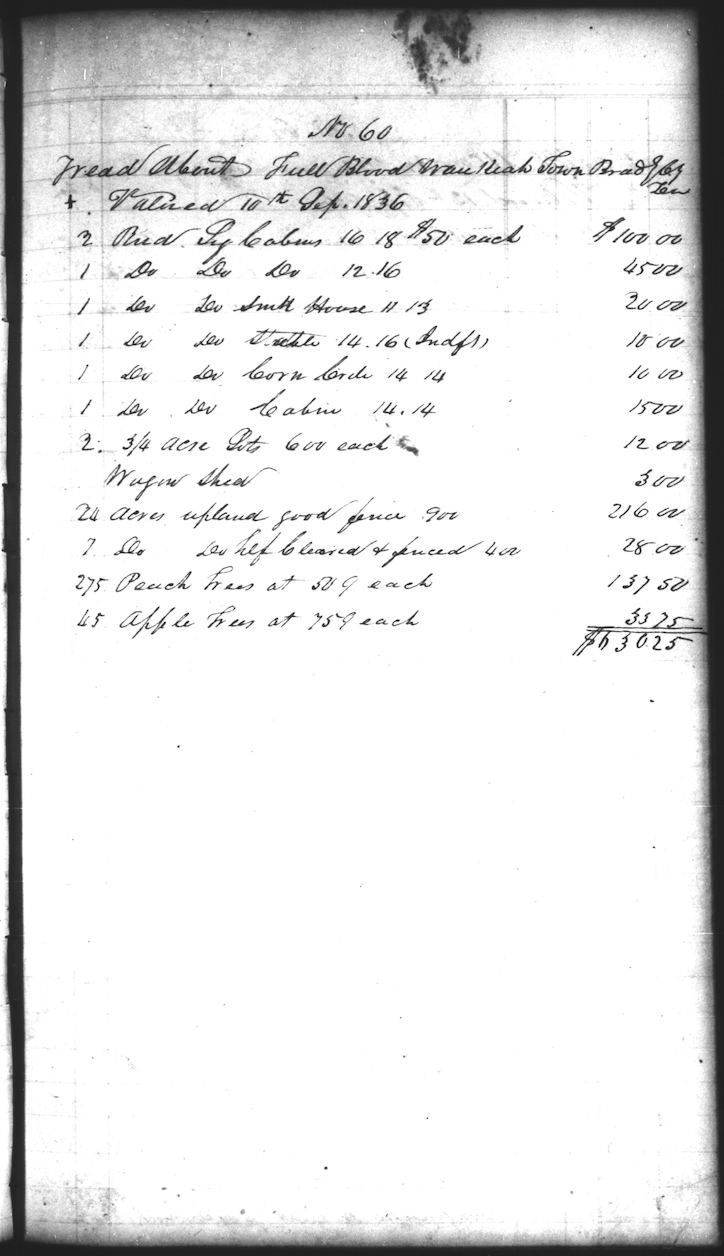 No 60
Tread About Full Blood Wau Keah Town Brad
Ten
+ Valued 10th Sep. 1836
2 Rud Log Cabins 16 18 $50 each $100 00
1 Do Do Do 12.16 45 00
1 Do Do Smk House 11 13 20 00
1 Do Do Stable 14.16 ( 10 00
1 Do Do Corn Crib 14 14 10 00
1 Do Do Cabin 14.14 15 00
2. 3/4 Acre Lots 600 each 12 00
Wagon Shed 3 00
24 Acres upland good fence 900 216 00
7 Do Do hlf Cleared & fenced 400 28 00
275 Peach Trees at 50¢ each 137 50
45 Apple Trees at 75¢ each 33 75
$630.25